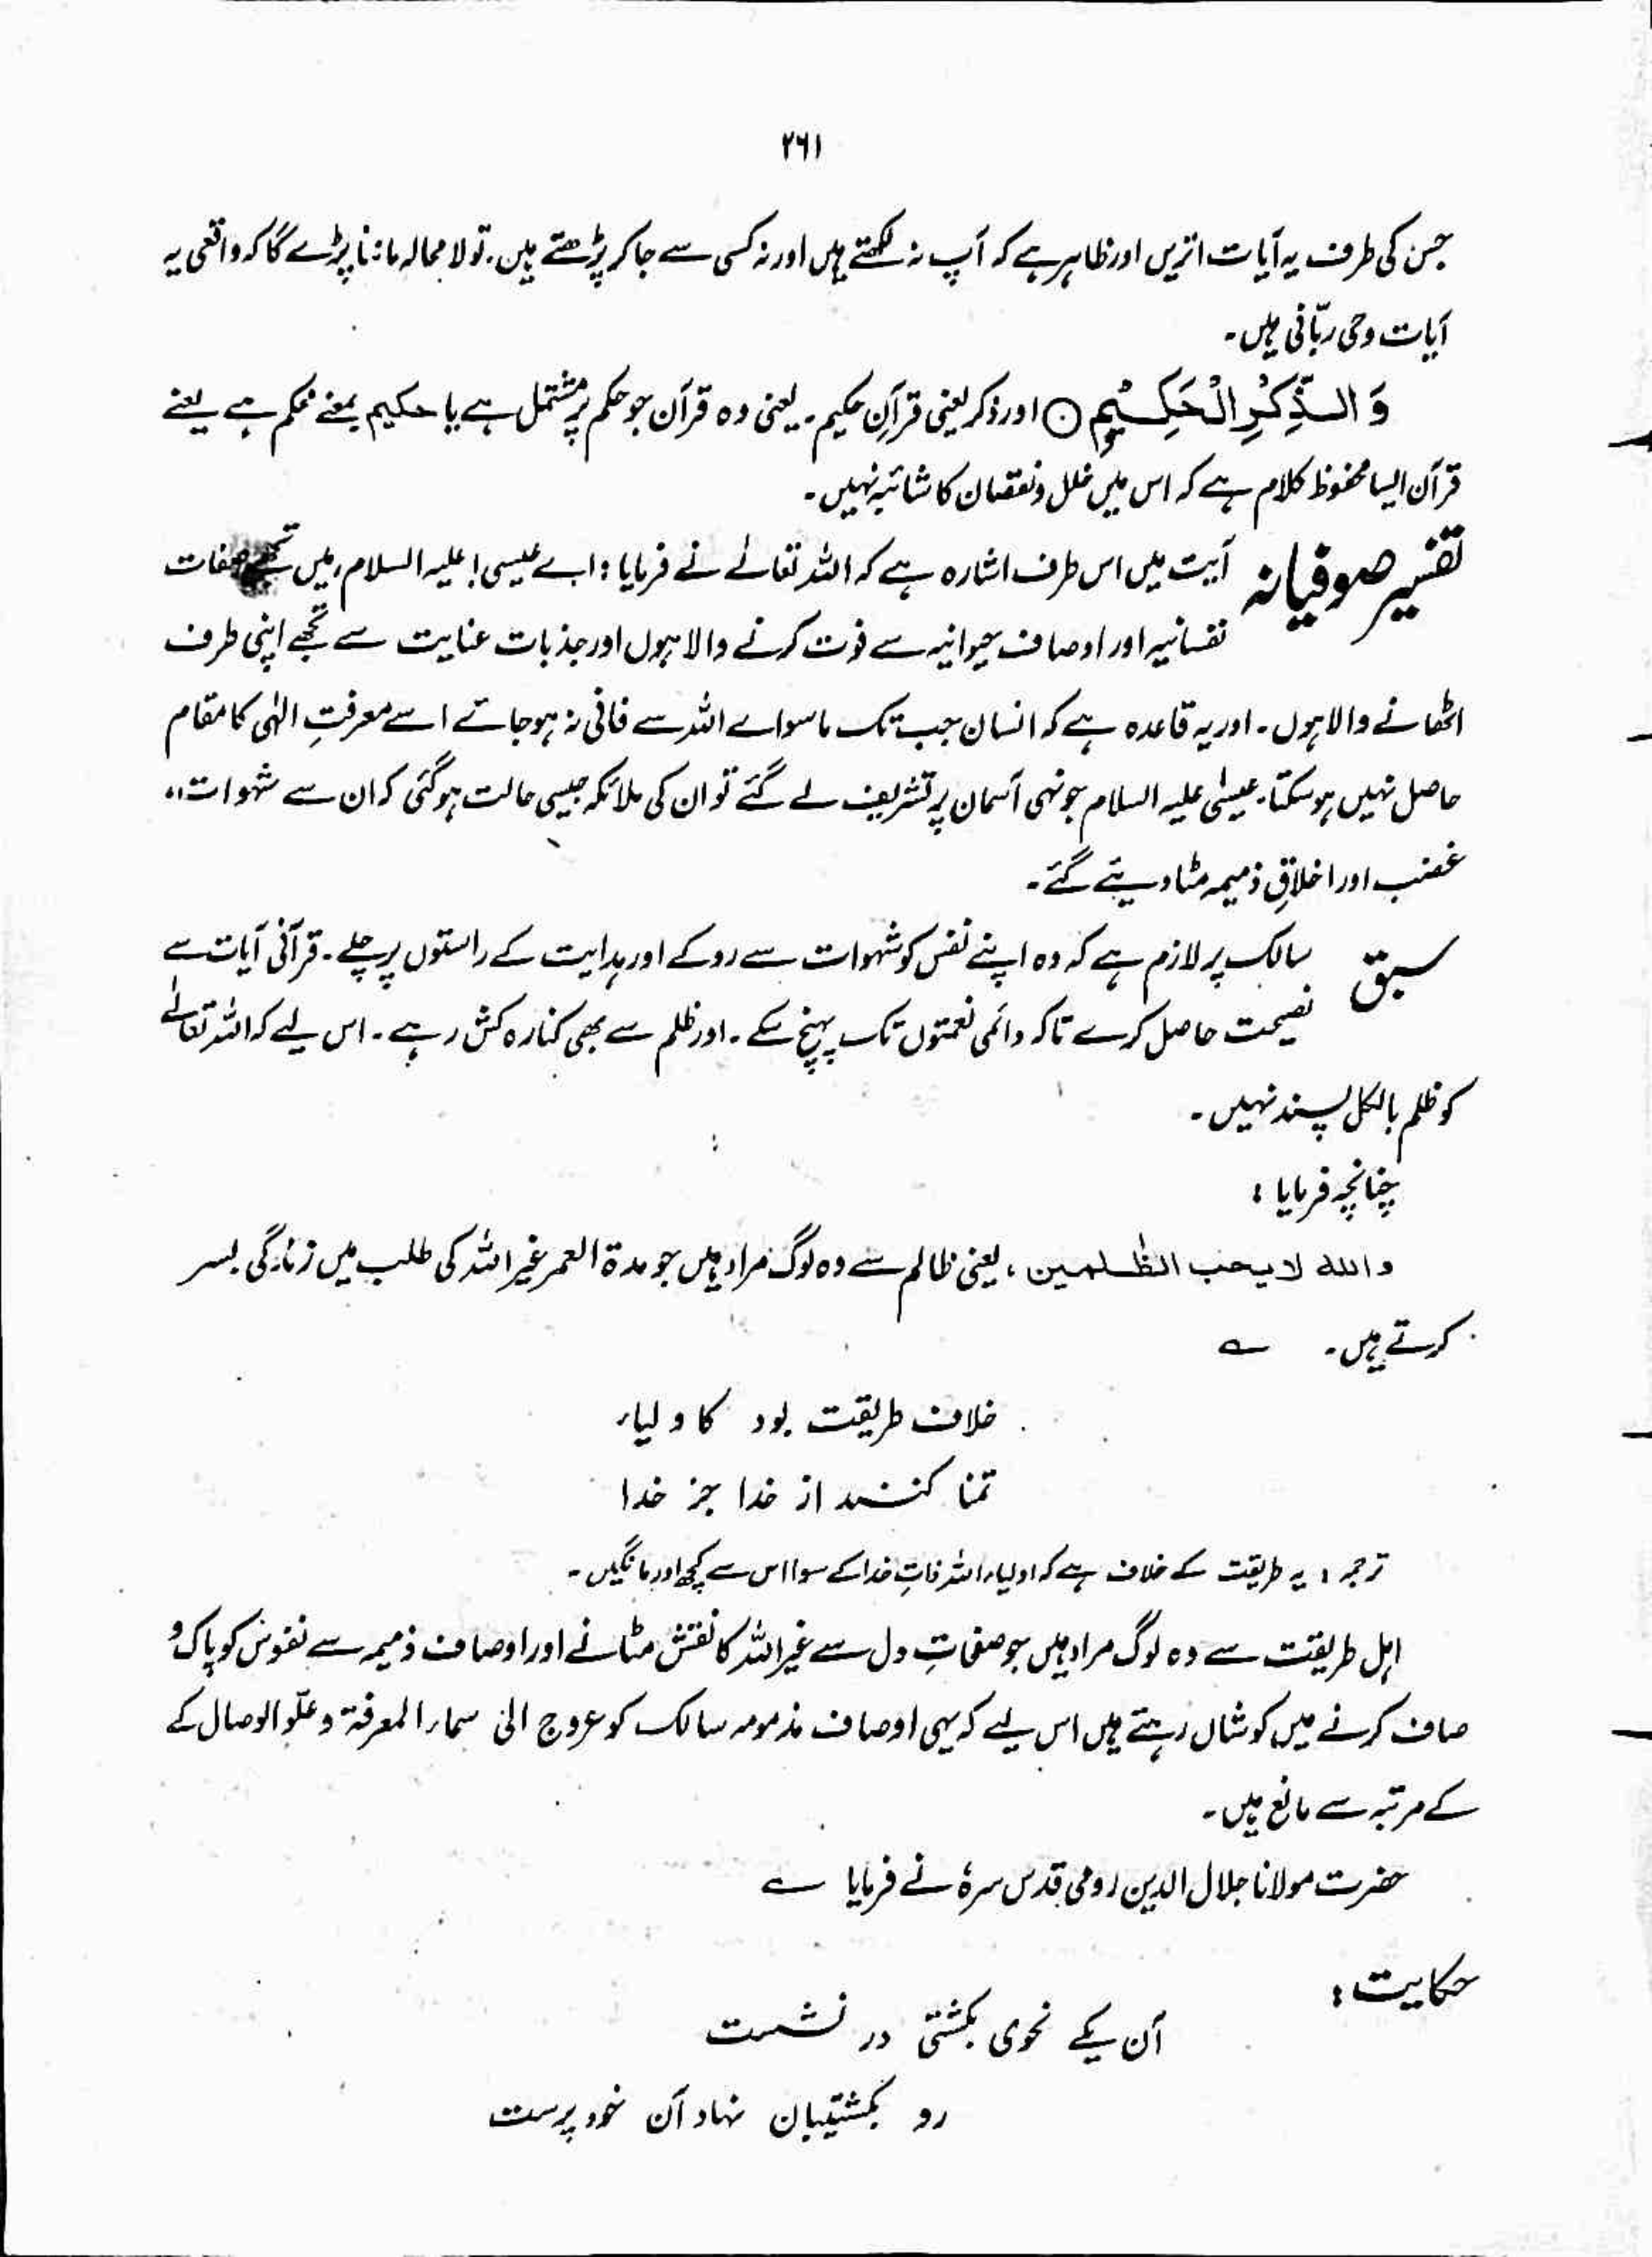 ۲۶۱
جن کی طرف یہ آیات اتریں اور ظاہر ہے کہ آپ نہ لکھتے ہیں اور نہ کسی سے جا کر پڑھتے ہیں۔ تو لا محالہ ماننا پڑے گا کہ واقعی یہ
آیات وحی ربّانی ہیں۔
وَ الذِّكْرِ الْحَكِيْمِ ○ اور ذکر یعنی قرآنِ حکیم۔ یعنی وہ قرآن جو حکم پر مشتمل ہے یا حکیم بمعنے محکم ہے یعنے
قرآن ایسا محفوظ کلام ہے کہ اس میں خلل و نقصان کا شائبہ نہیں۔
تفسیر صوفیانہ آیت میں اس طرف اشارہ ہے کہ اللہ تعالےٰ نے فرمایا : اے عیسیٰ! علیہ السلام، میں تجھے صفات
نفسانیہ اور اوصاف حیوانیہ سے فوت کرنے والا ہوں اور جذبات عنایت سے تجھے اپنی طرف
اٹھانے والا ہوں۔ اور یہ قاعدہ ہے کہ انسان جب تک ماسوا اے اللہ سے فانی نہ ہو جائے اسے معرفتِ الٰہی کا مقام
حاصل نہیں ہو سکتا۔ عیسٰی علیہ السلام جونہی آسمان پر تشریف لے گئے تو ان کی ملائکہ جیسی حالت ہو گئی کہ ان سے شہوات،
غضب اور اخلاقِ ذمیمہ مٹا دیئے گئے۔
سبق سالک پر لازم ہے کہ وہ اپنے نفس کو شہوات سے روکے اور ہدایت کے راستوں پر چلے۔ قرآنی آیات سے
نصیحت حاصل کرے تاکہ دائمی نعمتوں تک پہنچ سکے۔ اور ظلم سے بھی کنارہ کش رہے۔ اس لیے کہ اللہ تعالےٰ
کو ظلم بالکل پسند نہیں۔
چنانچہ فرمایا :
و اللہ لا یحب الظٰلمین ، یعنی ظالم سے وہ لوگ مراد ہیں جو مدۃ العمر غیر اللہ کی طلب میں زندگی بسر
کرتے ہیں۔ ؎
خلاف طریقت بود کا ولیاء
تمنا کنند از خدا جز خدا
ترجمہ : یہ طریقت کے خلاف ہے کہ اولیاء اللہ ذاتِ خدا کے سوا اس سے کچھ اور مانگیں۔
اہل طریقت سے وہ لوگ مراد ہیں جو صفحاتِ دل سے غیر اللہ کا نقش مٹانے اور اوصاف ذمیمہ سے نفوس کو پاک و
صاف کرنے میں کوشاں رہتے ہیں اس لیے کہ یہی اوصاف مذمومہ سالک کو عروج الیٰ سماء المعرفۃ و علّو الوصال کے
کے مرتبہ سے مانع ہیں۔
حضرت مولانا جلال الدین رومی قدس سرہٗ نے فرمایا ؎
حکایت :
آن یکے نحوی بکشتی در نشست
رو بکشتیبان نہاد آن خود پرست